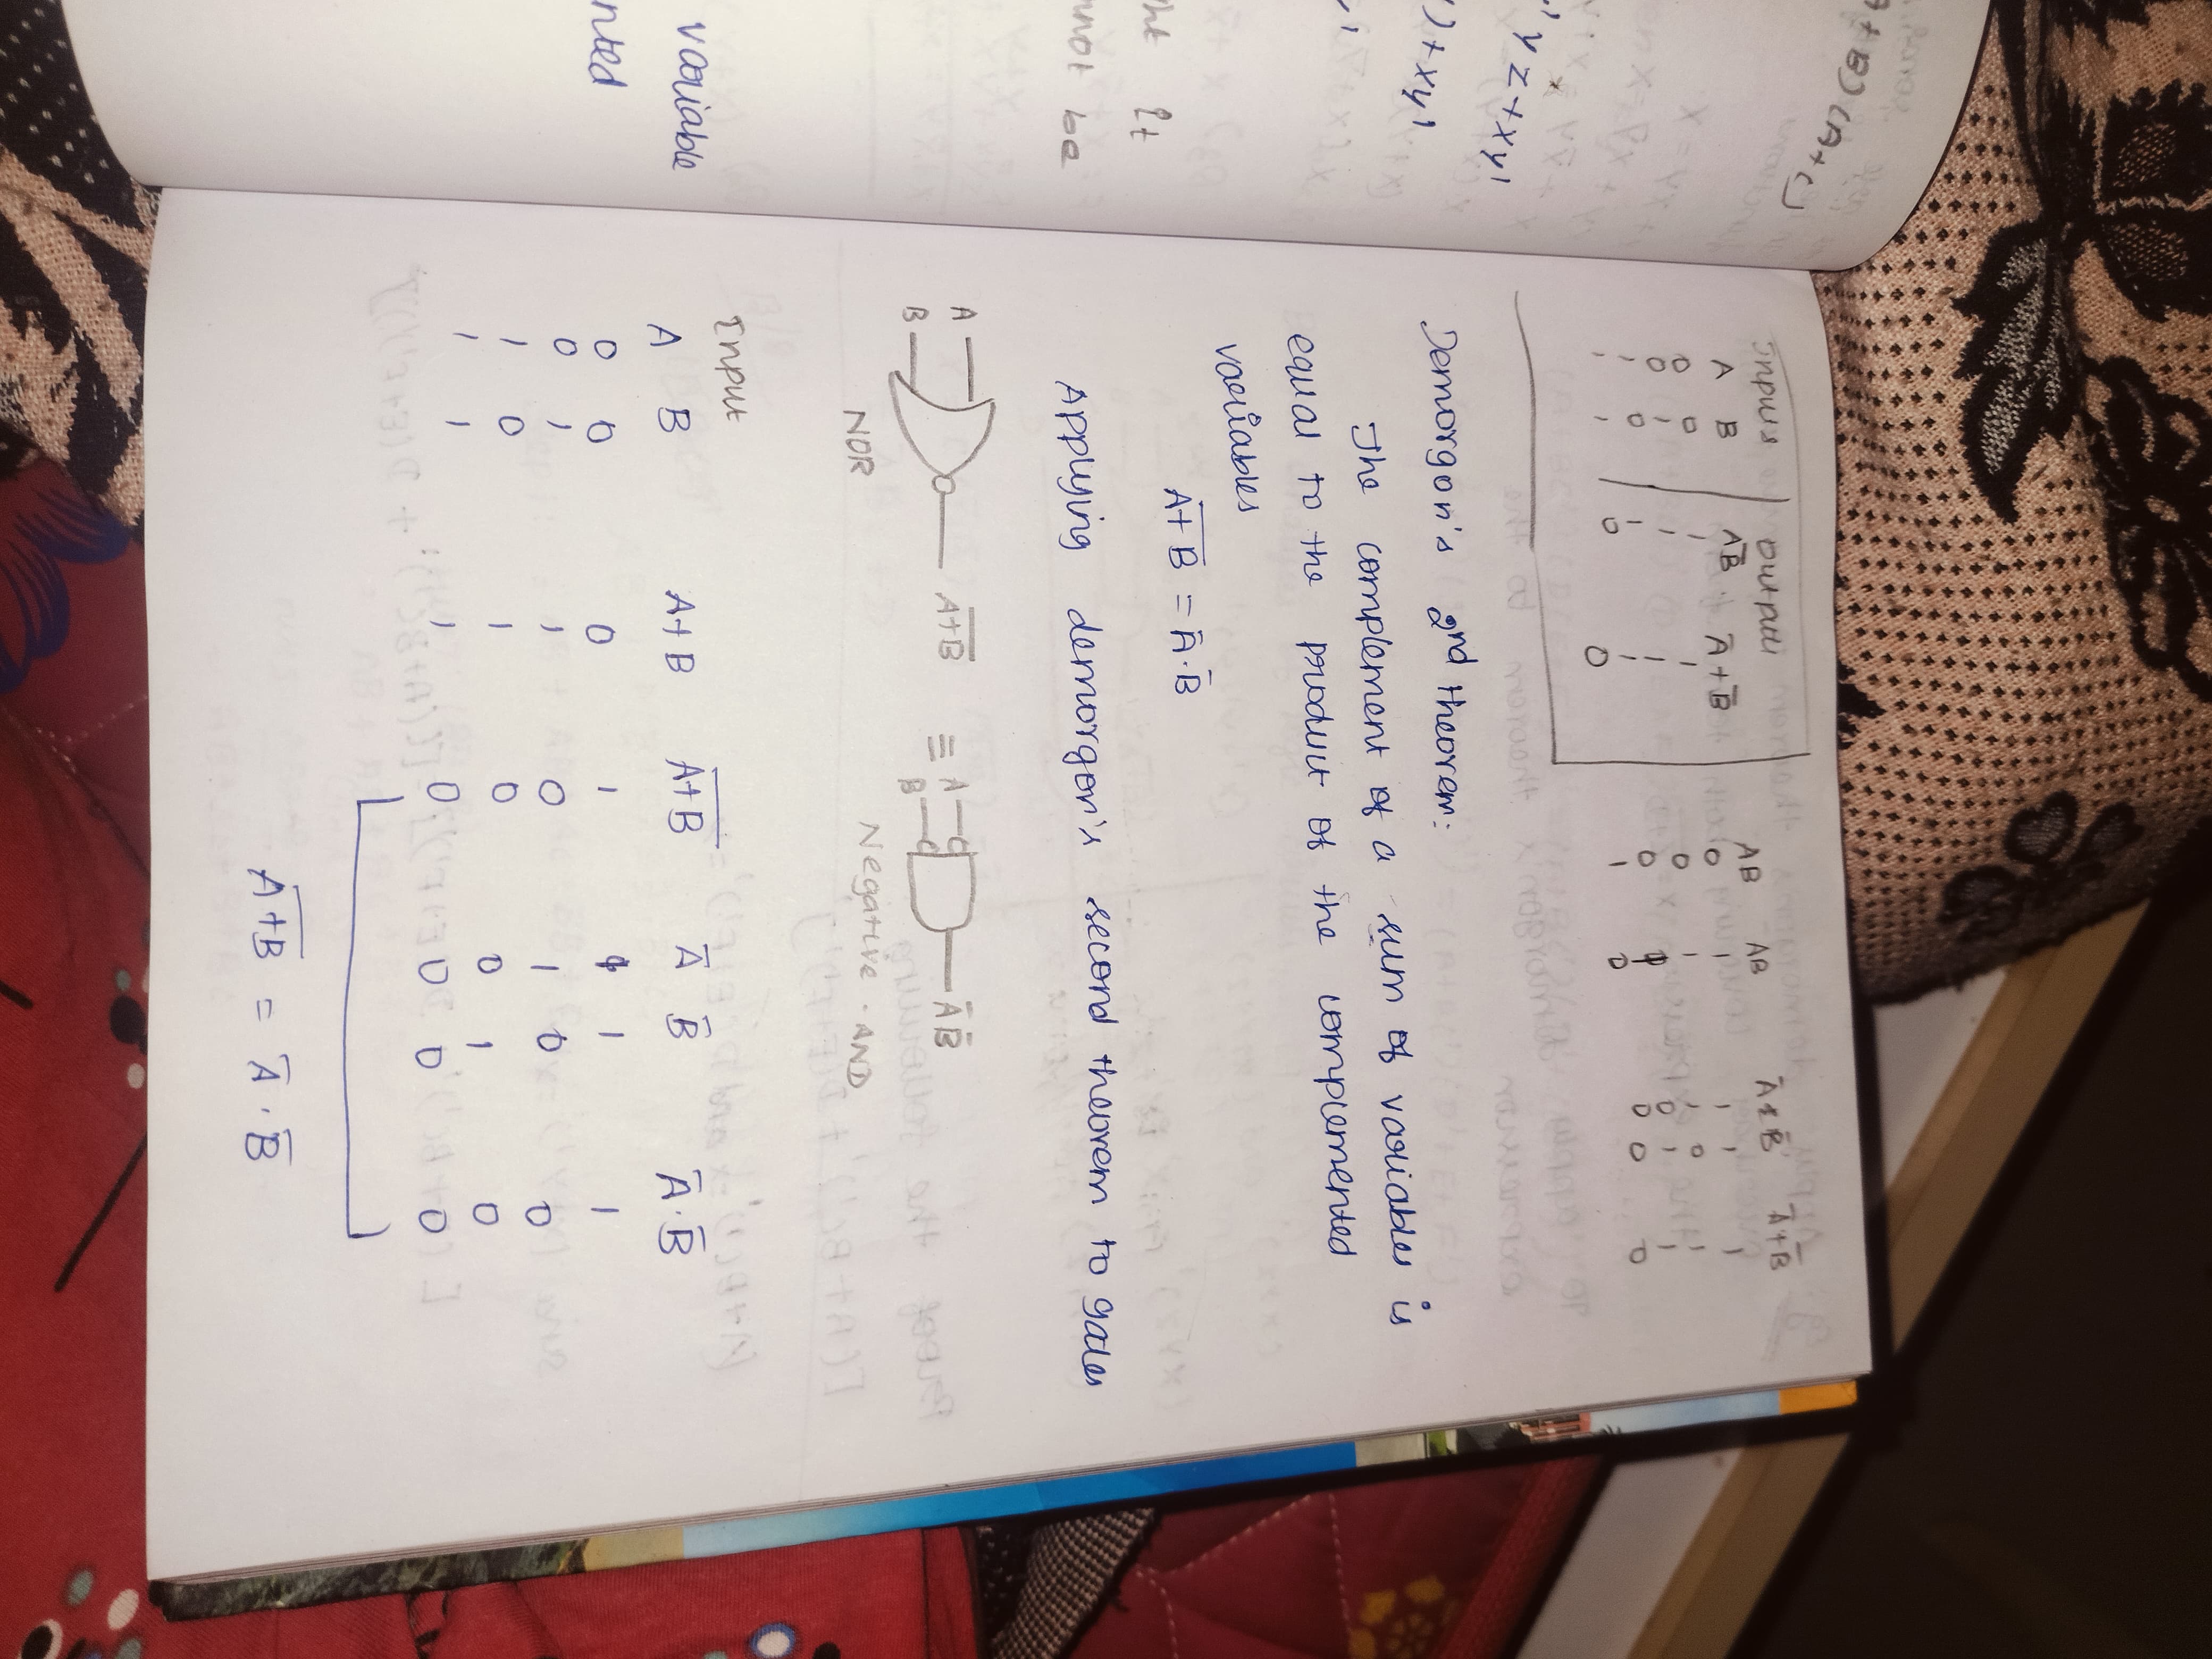 variable
nted
ht it
nnot be
' y z + x y '
) + x y '
(A+C)
Inpus output
A B AB A+B
0 0 1 1
0 1 1 1
1 0 1 1
1 1 0 0
AB AB A B A+B
0 1 1 1 1
0 1 1 0 1
0 1 0 1 1
1 0 0 0 0
Demorgan's 2nd theorem:
The complement of a sum of variables is
equal to the product of the complemented
variables
A̅+̅B̅ = A̅·B̅
Applying demorgan's second theorem to gates
A
B A̅+̅B̅ ≡ A
B A̅B̅
NOR Negative-AND
Input
A B A+B A̅+̅B̅ A̅ B̅ A̅·B̅
0 0 0 1 1 1 1
0 1 1 0 1 0 0
1 0 1 0 0 1 0
1 1 1 0 0 0 0
A̅+̅B̅ = A̅·B̅